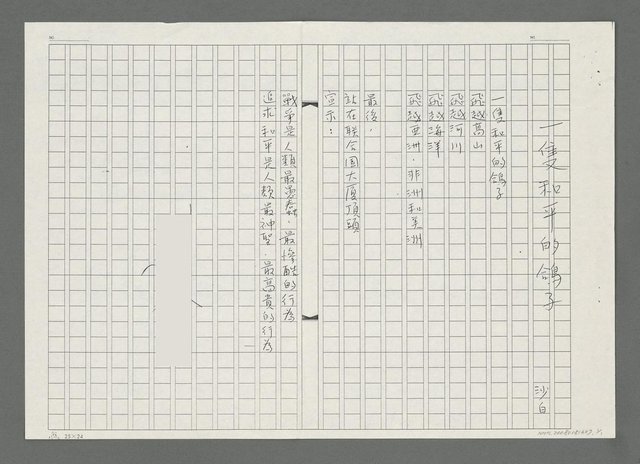 一隻和平的鴿子
沙白
一隻和平的鴿子
飛越高山
飛越河川
飛越海洋
飛越亞洲、非洲和美洲
最後，
站在联合国大厦頂頭
宣示：
戰爭是人類最愚蠢、最慘酷的行為
追求和平是人類最神聖、最高貴的行為
25×24